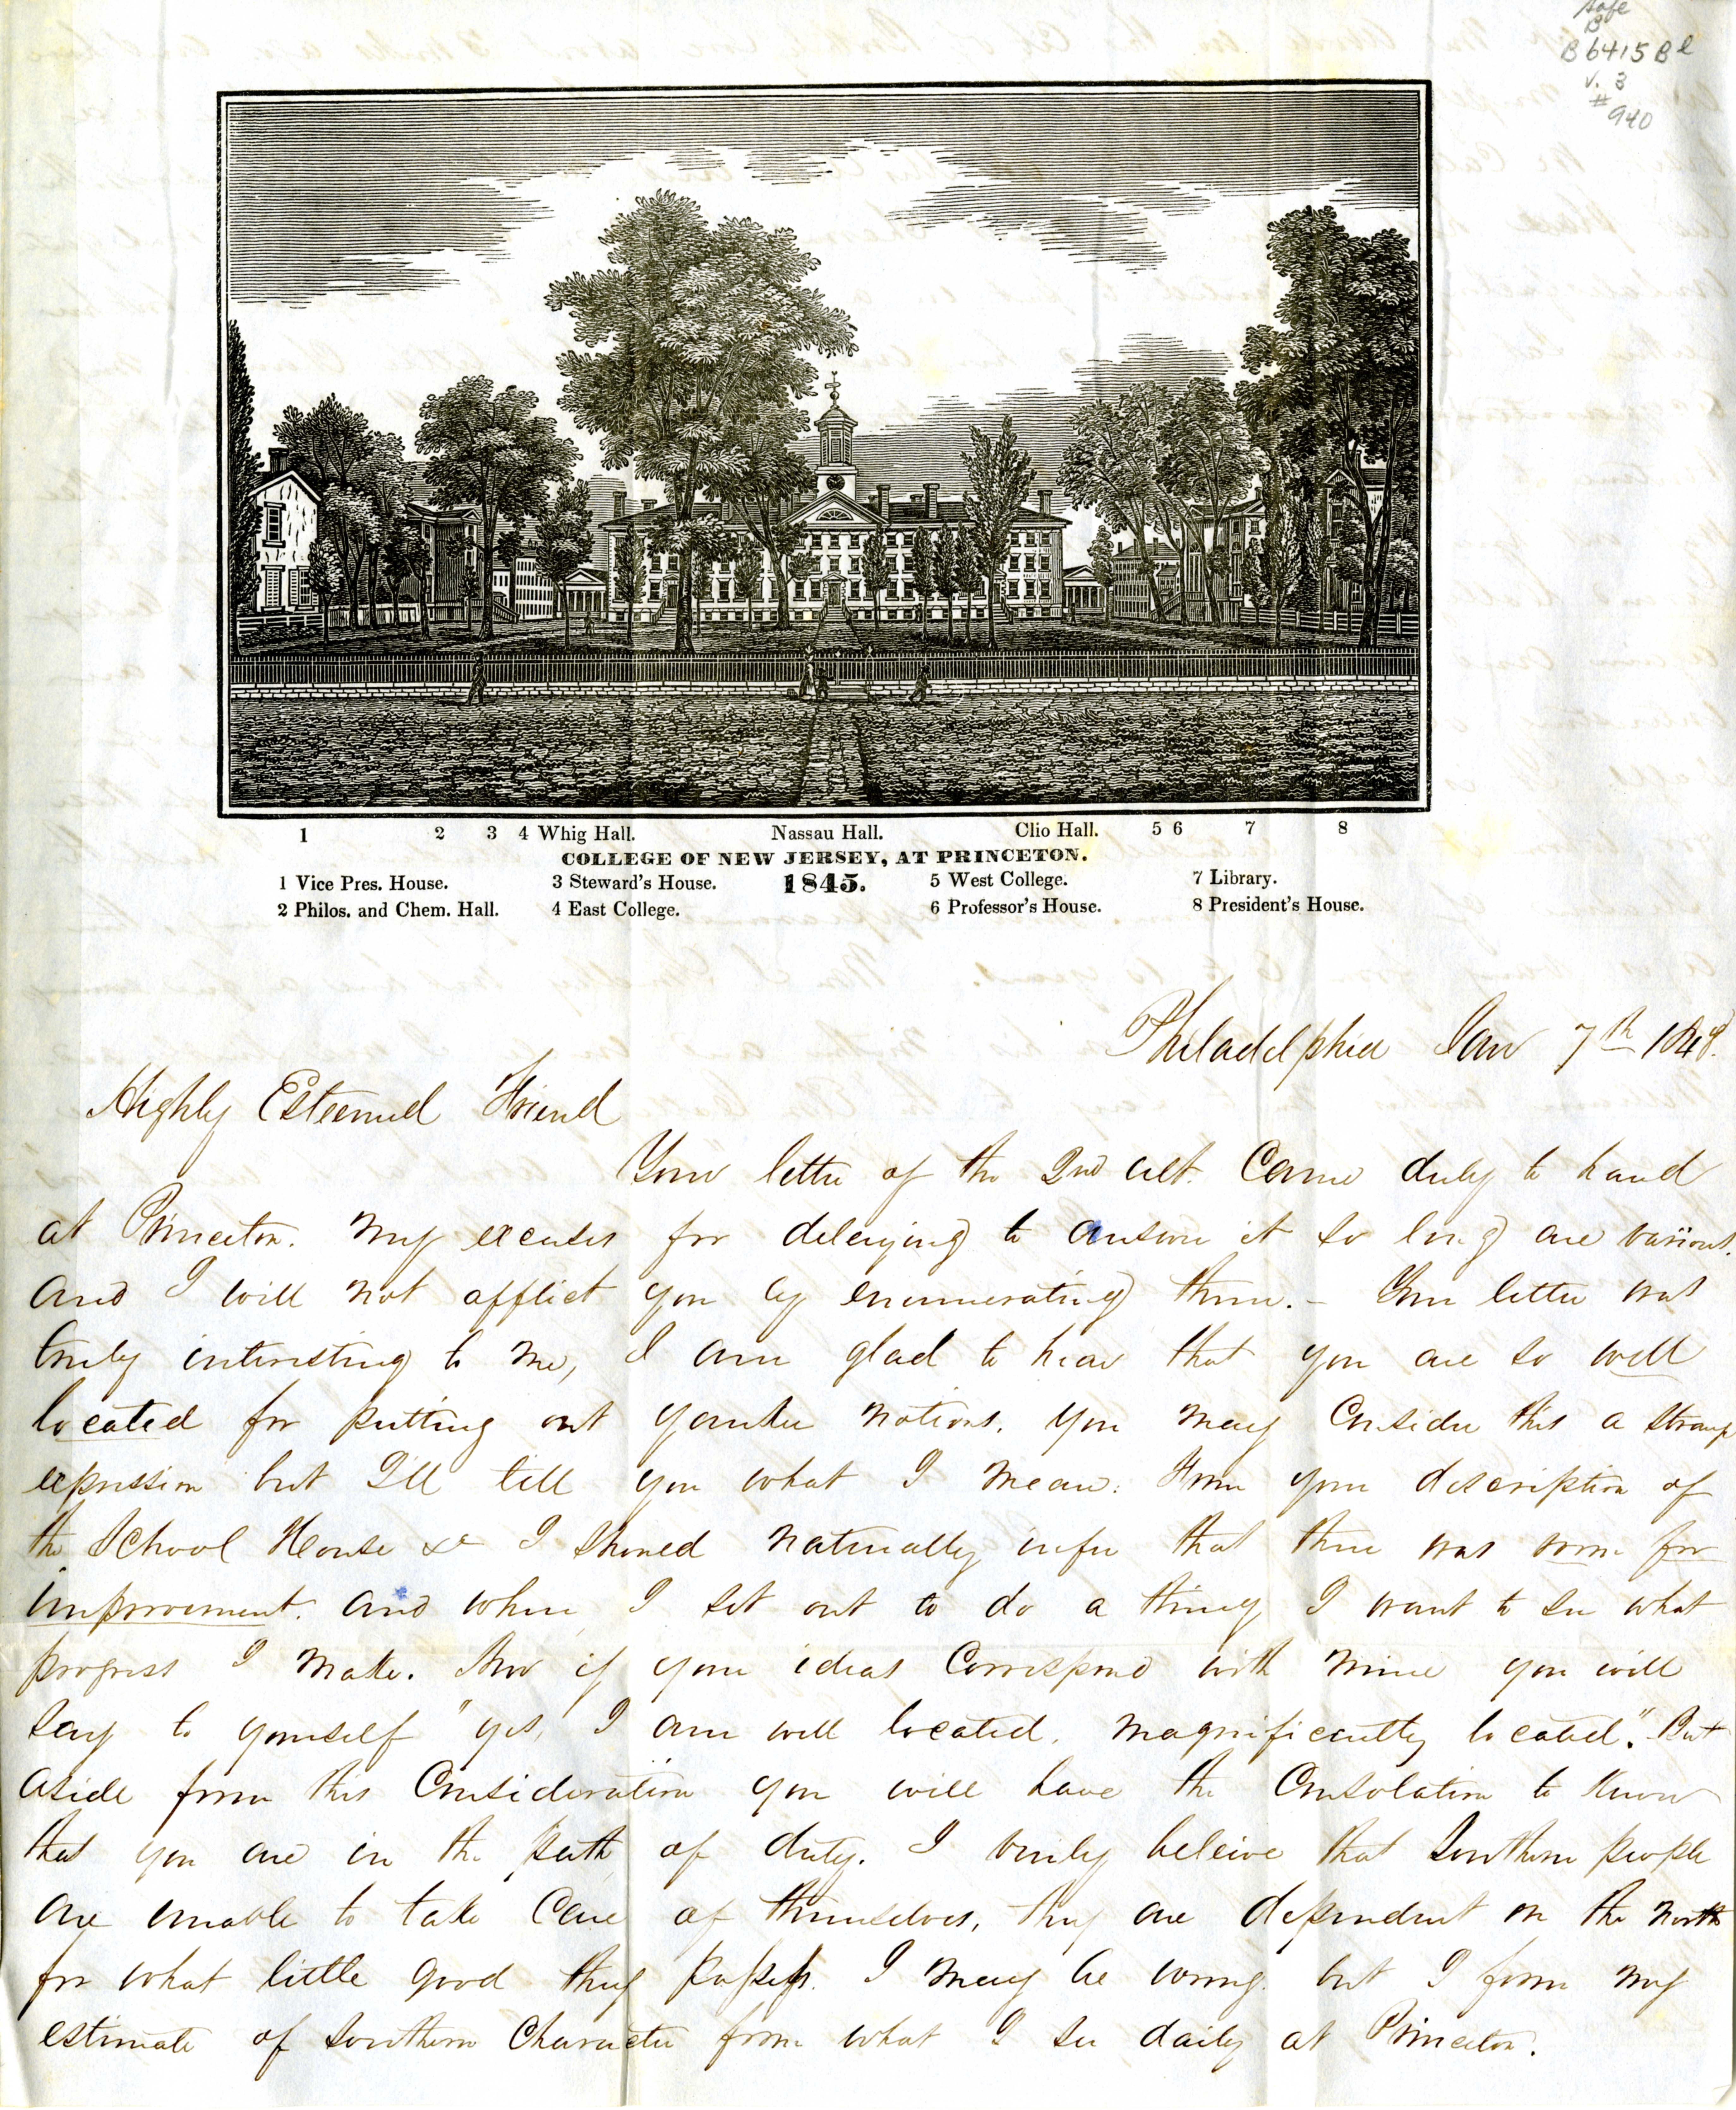 Safe
B
B6415Bl
v. 3
#
940
1 2 3 4 Whig Hall. Nassau Hall. Clio Hall. 5 6 7 8
COLLEGE OF NEW JERSEY, AT PRINCETON.
1 Vice Pres. House. 3 Steward's House. 1845. 5 West College. 7 Library.
2 Philos. and Chem. Hall. 4 East College. 6 Professor's House. 8 President's House.
Philadelphia Jan 7th 1848.
Highly Esteemed Friend
Your letter of the 2nd ult. Came duly to hand
at Princeton. My excuses for delaying to answer it so long are various.
And I will not afflict you by enumerating them. – Your letter was
truly interesting to me, I am glad to hear that you are so well
located for putting out yankee notions. You may Consider this a strange
expression but I'll tell you what I mean. From your description of
the School House &c I should naturally infer that there was room for
improvement. And when I set out to do a thing I want to see what
progress I make. Now if your ideas Correspond with mine you will
say to yourself "yes, I am well located, magnificently located". But
Aside from this Consideration you will have the Consolation to Know
that you are in the path of duty. I verily beleive that Southern people
are unable to take Care of themselves, they are dependent on the North
for what little good they possess. I may be wrong. but I form my
estimate of Southern Character from what I see daily at Princeton.